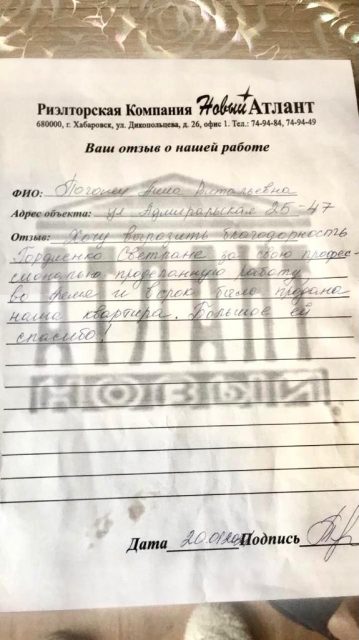 Риэлторская Компания Новый Атлант
680000, г. Хабаровск, ул. Дикопольцева, д. 26, офис 1. Тел.: 74-94-84, 74-94-49
Ваш отзыв о нашей работе
ФИО: Витальевна
Адрес объекта: ул Адмиральская 25-47
Отзыв: Хочу выразить благодорность
Гордиенко Светлане за свою профес-
сионально проделанную работу
во время и в срок была продана
наша квартира. Большое ей
спасибо!
АТЛАНТ
НОВЫЙ
Дата Подпись